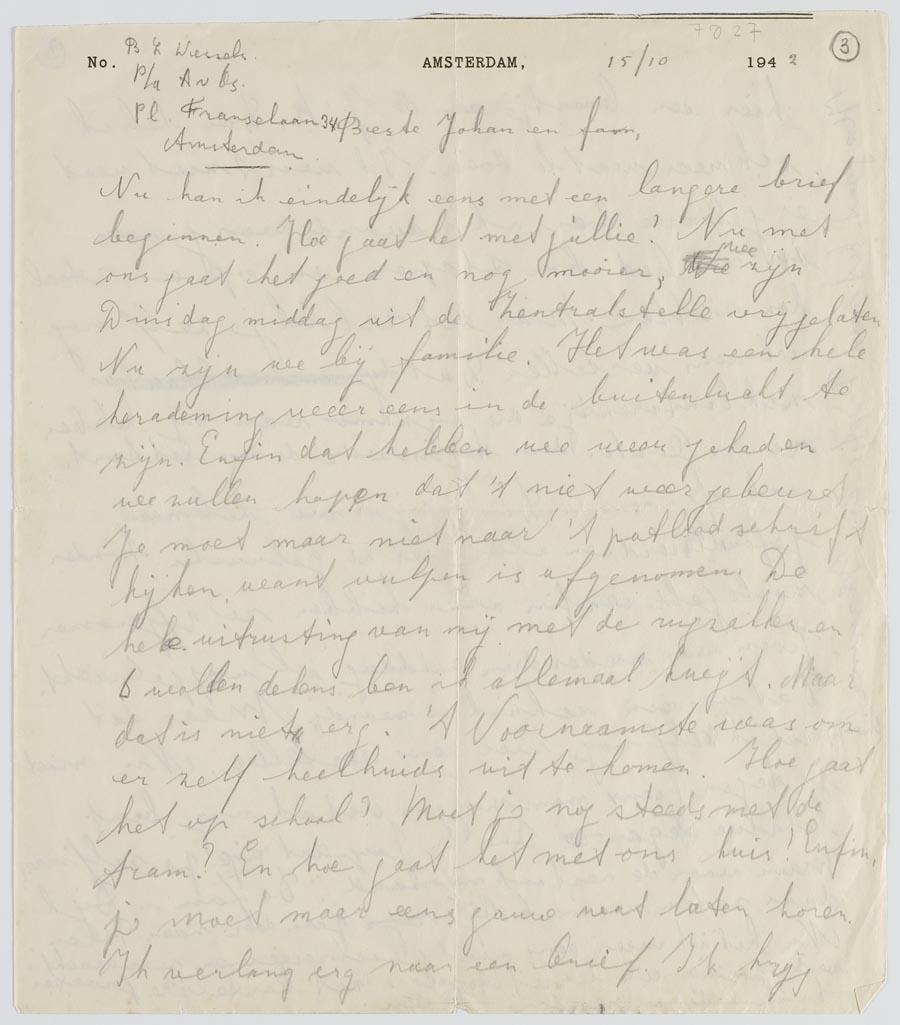 7027
3
No. AMSTERDAM, 15/10 1942
B Z Wessels.
P/a A v Os.
Pl. Franselaan 34
Amsterdam
Beste Johan en fam,
Nu kan ik eindelijk eens met een langere brief
beginnen. Hoe gaat het met jullie? Nu met
ons gaat het goed en nog mooier, wee zijn
Dinsdag middag uit de Zentralstelle vrijgelaten
Nu zijn wee bij familie. Het was een hele
herademing weer eens in de buitenlucht te
zijn. Enfin dat hebben wee weer gehad en
wee zullen hopen dat 't niet weer gebeurd
Je moet maar niet naar 't potlood schrift
kijken, want vulpen is afgenomen. De
hele uitrusting van mij met de rugzakken en
6 wollen dekens ben ik allemaal kwijt. Maar
dat is niet erg. 't Voornaamste was om
er zelf heelhuids uit te komen. Hoe gaat
het op school? Moet je nog steeds met de
tram? En hoe gaat het met ons huis! Enfin,
je moet maar eens gauw wat laten horen.
Ik verlang erg naar een brief. Ik krijg